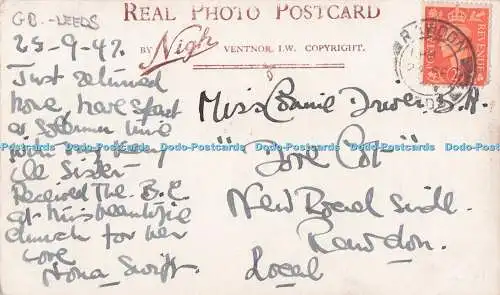 GB.-LEEDS
REAL PHOTO POSTCARD
BY Nigh VENTNOR, I.W. COPYRIGHT.
25-9-47.
Just returned
home, have spent
a solemn time
with my
ill Sister
Received The B.C
at this beautiful
church for her
love
Nona Swift.
REVENUE
RAWDON
Miss Connie
"Dove Cot"
New Road Side
Rawdon.
Local
Dodo-Postcards Dodo-Postcards Dodo-Postcards Dodo-Postcards Dodo-Postcards Dodo-Postcards